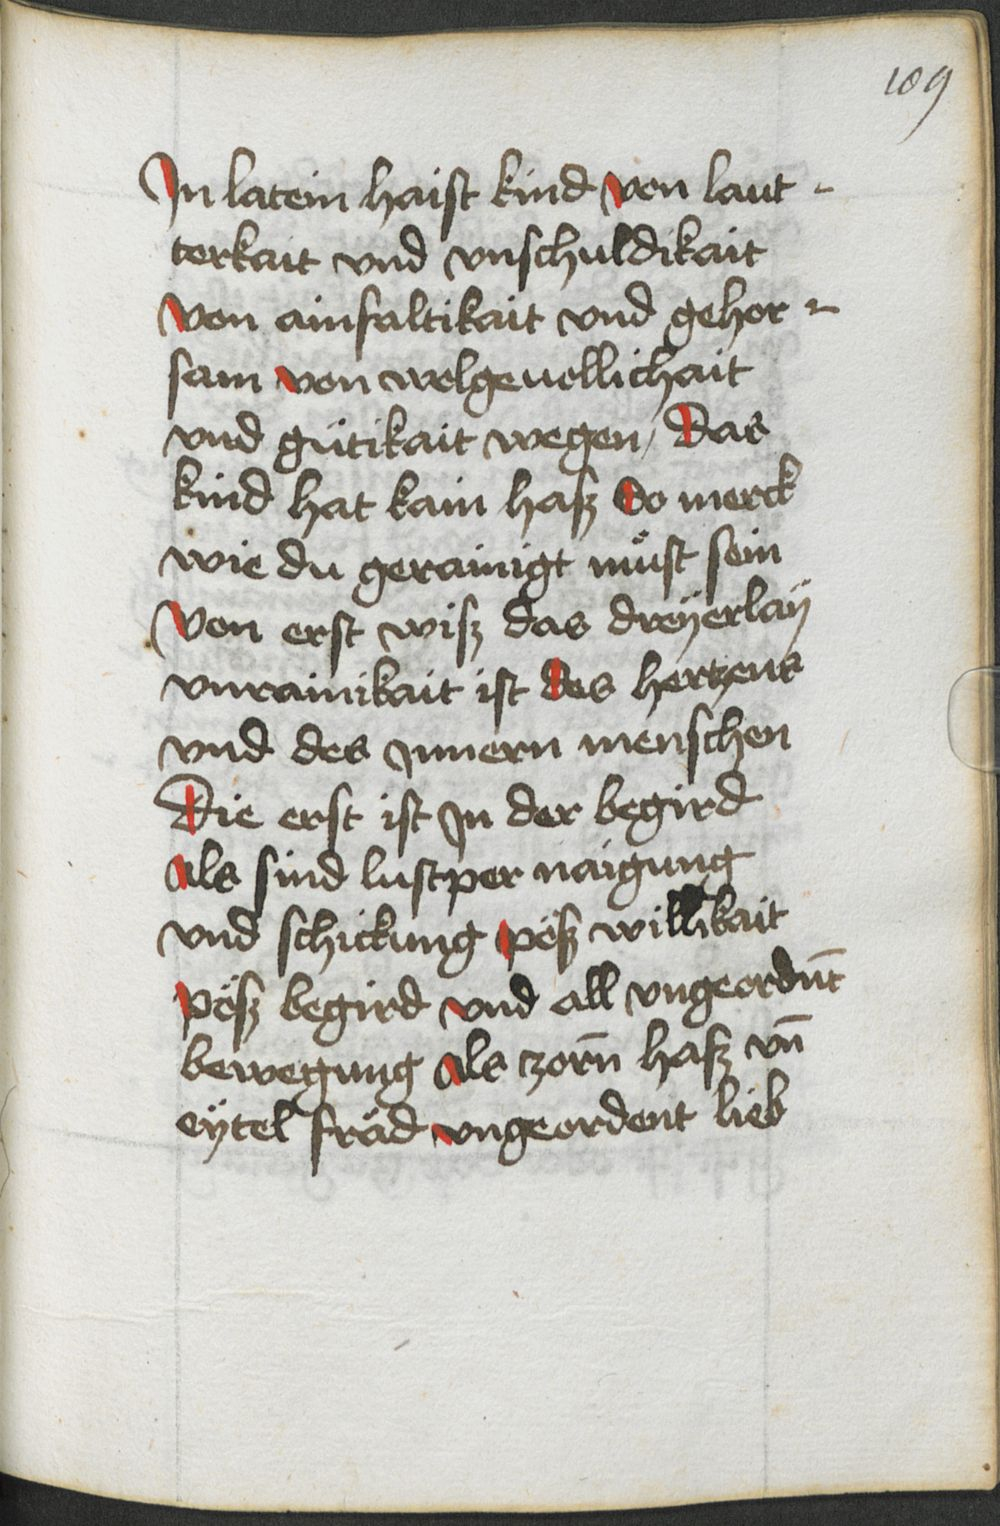 109
In latein haist kind von laut -
terkait vnd vnschuldikait
von ainfaltikait vnd gehor -
sam von wolgeuellichait
vnd gütikait wegen / Das
kind hat kain hasz do merck
wie du gerainigt müst sein
Von erst wisz das dreÿerlaÿ
vnrainikait ist des hertzens
vnd des Innern menschen
Die erst ist In der begird
als sind lustper naigung
vnd schickung pösz willikait
pösz begird vnd all vngeordn̄t
bewegung als zorn̄ hasz vn̄
eÿtel fräd vngeordent lieb